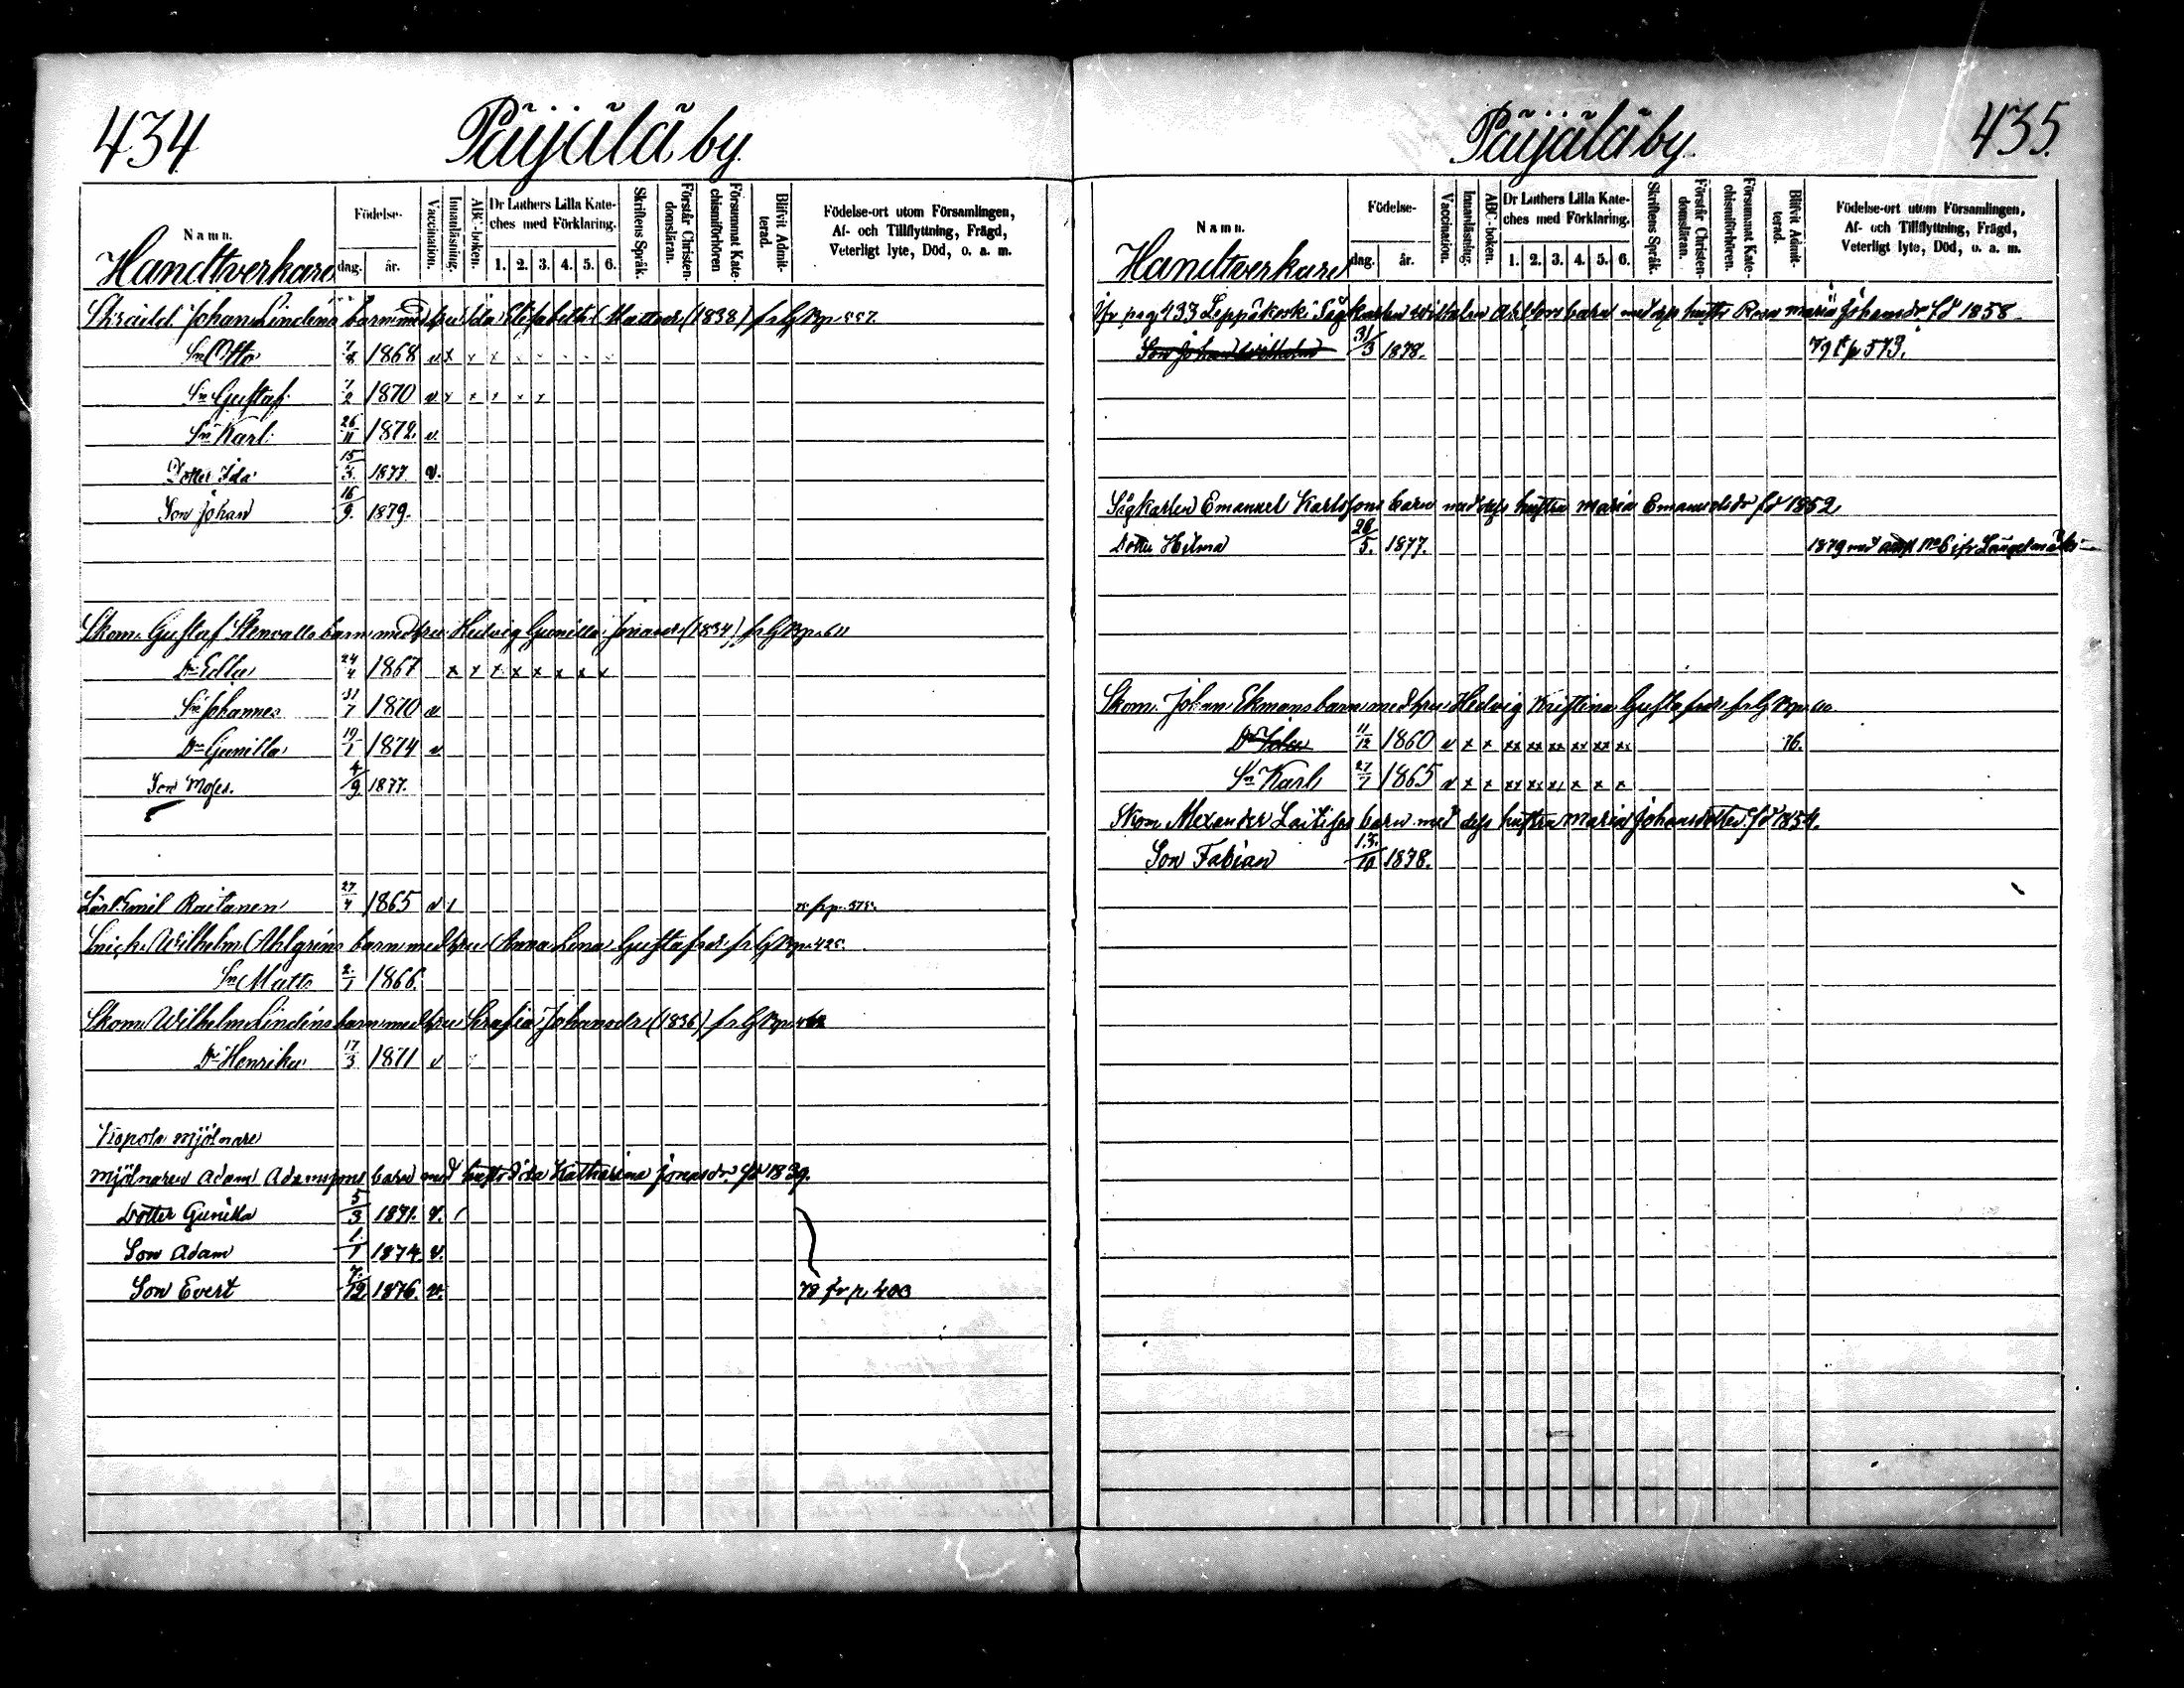 434 Päijälä by.
Namn. Födelse- Vaccination. Innanläsning. ABC-boken. Dr Luthers Lilla Kateches med Förklaring. Skriftens Språk. Förstår Christendomsläran. Försummat Katechismiförhören Blifvit Admitterad. Födelse-ort utom Församlingen, Af- och Tillflyttning, Frägd, Veterligt lyte, Död, o. a. m.
Handtverkare dag. år. 1. 2. 3. 4. 5. 6.
Skrädd. Johan Lindéns barn med hru Ida Elisabeth Mattsdr (1838) fr. G B p. 557.
Sn Otto 7/8 1868 v x x x
Sn Gustaf 7/2 1870 v x x x x x
Sn Karl 26/11 1872. v.
Dotter Ida 15/3. 1877. v.
Son Johan 16/9. 1879.
Skom. Gustaf Stenvalls barn med hru Hedvig Gunilla Jonasdr (1834) fr G B p. 611
Dr Edla 24/4 1867 x x x x x x x x
Sn Johannes 31/7 1870 v
Dr Gunilla 19/1 1874 v
Son Moses. 4/9 1877.
Lärl. Emil Raitanen 27/4 1865 v
Snick. Wilhelm Ahlgréns barn med hru Anna Lena Gustafsdr fr G B p. 425.
Sn Matts 2./1 1866.
Skom. Wilhelm Lindéns barn med hru Serafia Johansdr (1836) fr G B p.
Dr Henrika 17/3 1871 v
mjölnare
Mjölnaren Adam Adamssons barn med hustr Ida Katharina Jonasdr. fd 1839.
Dotter Gunilla 5/3 1871. v.
Son Adam 1/1 1874. v.
Son Evert 7./12 1876. v. 78 fr p. 403
Päijälä by. 435.
Namn. Födelse- Vaccination. Innanläsning. ABC-boken. Dr Luthers Lilla Kateches med Förklaring. Skriftens Språk. Förstår Christendomsläran. Försummat Katechismiförhören. Blifvit Admitterad. Födelse-ort utom Församlingen, Af- och Tillflyttning, Frägd, Veterligt lyte, Död, o. a. m.
Handtverkare dag. år. 1. 2. 3. 4. 5. 6.
Jfr pag 433 Leppäkoski Sågkarlen Wilhelm Ahlfors barn med dess hustr Rosa Maria Johansdr fd 1858
Son Johan Wilhelm 31/3 1878. 79 t p 573.
Sågkarlen Emanuel Karlssons barn med dess hustru Maria Emanuelsdr fd 1852
Dotter Hilma 26/5. 1877. 1879 med No 6 ifr Längelmäki
Skom. Johan Ekmans barn med hru Hedvig Kristina Gustafsdr fr G B p.
Dr Ida 11/12 1860 v x x xx xx xx xx xx xx 76.
Sn Karl 27/7 1865 v x x xx xx xx x x x
Skom Alexander Laitises barn med dess hustru Maria Johansdotter fd 1854.
Son Fabian 13./10 1878.